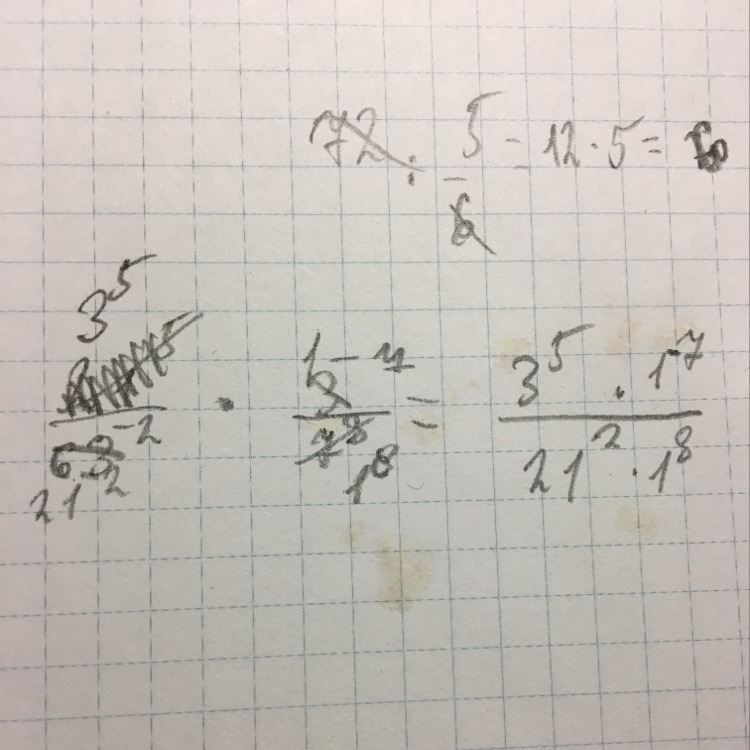 72 : 5/6 = 12 · 5 = 60
3^5 / 21^-2 · 1^-4 / 1^8 = 3^5 · 1^-7 / 21^2 · 1^8